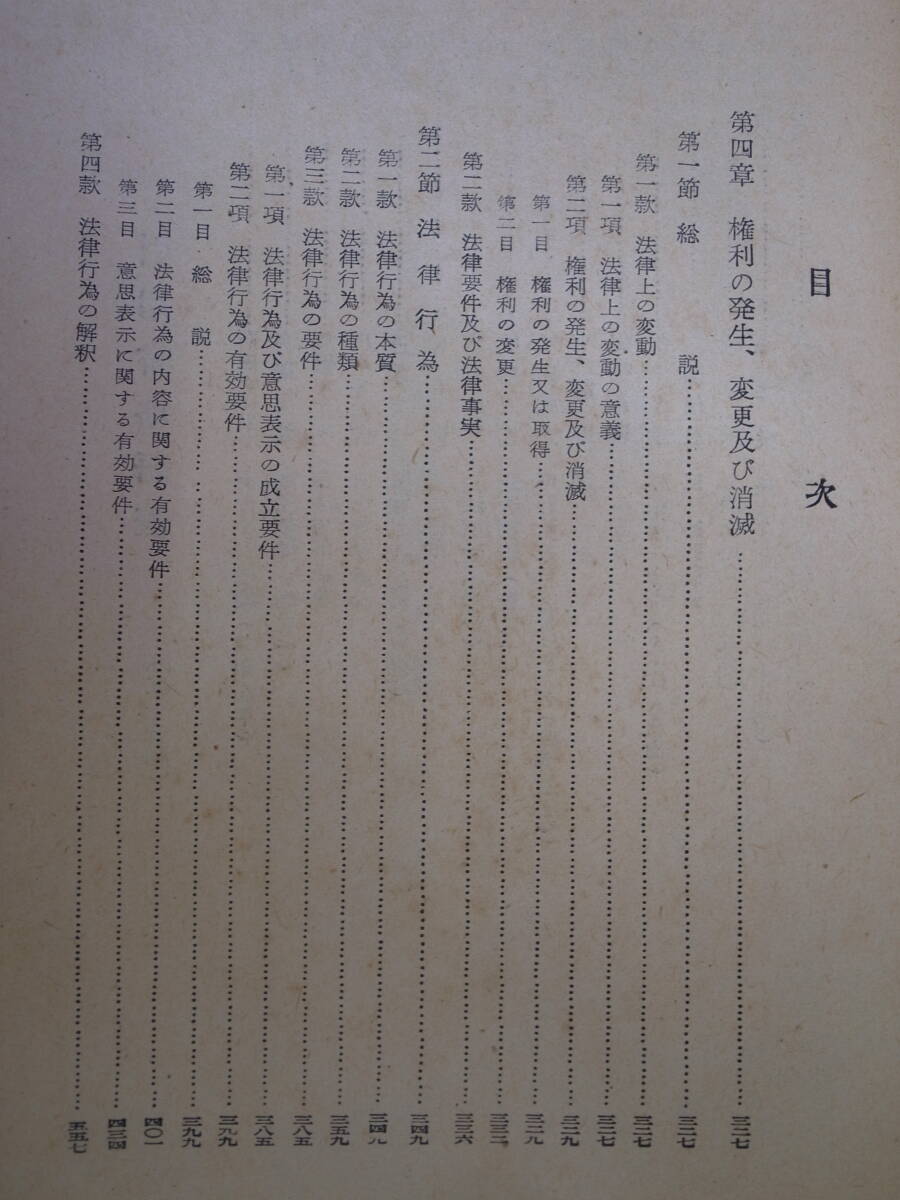 目次
第四章 権利の発生、変更及び消滅……三二七
第一節 総説……三二七
第一款 法律上の変動……三二七
第一項 法律上の変動の意義……三二七
第二項 権利の発生、変更及び消滅……三二九
第一目 権利の発生又は取得……三二九
第二目 権利の変更……三三二
第二款 法律要件及び法律事実……三三六
第二節 法律行為……三四九
第一款 法律行為の本質……三四九
第二款 法律行為の種類……三五九
第三款 法律行為の要件……三八五
第一項 法律行為及び意思表示の成立要件……三八五
第二項 法律行為の有効要件……三九九
第一目 総説……三九九
第二目 法律行為の内容に関する有効要件……四〇一
第三目 意思表示に関する有効要件……四三四
第四款 法律行為の解釈……五五七